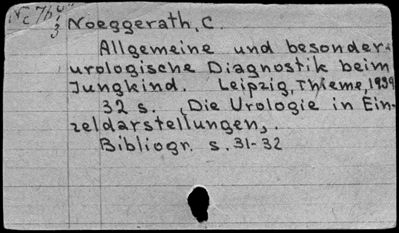 Noeggerath, C.
Allgemeine und besondere
urologische Diagnostik beim
Jungkind. Leipzig, Thieme, 1939
32 s. (Die Urologie in Ein-
zeldarstellungen).
Bibliogr. s. 31-32